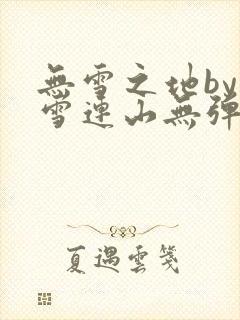 無雪之地by
雪連山無彈
夏遇雲箋